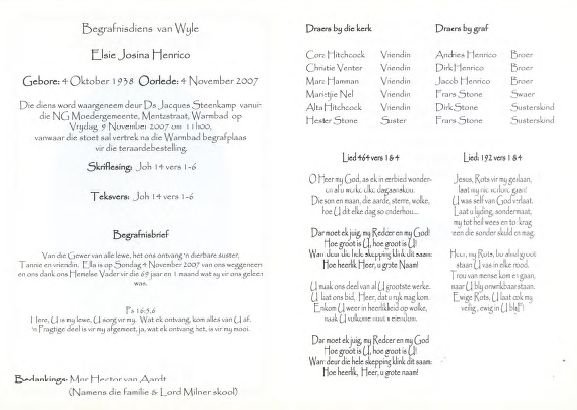 Begrafnisdiens van Wyle
Elsie Josina Henrico
Gebore: 4 Oktober 1938 Oorlede: 4 November 2007
Die diens word waargeneem deur Ds Jacques Steenkamp vanuit
die NG Moedergemeente, Mentzstraat, Warmbad op
Vrydag 9 November 2007 om 11h00,
vanwaar die stoet sal vertrek na die Warmbad begrafplaas
vir die teraardebestelling.
Skriflesing: Joh 14 vers 1-6
Teksvers: Joh 14 vers 1-6
Begrafnisbrief
Van die Gewer van alle lewe, het ons ontvang 'n dierbare suster,
Tannie en vriendin. Ella is op Sondag 4 November 2007 van ons weggeneem
en ons dank ons Hemelse Vader vir die 69 jaar en 1 maand wat sy vir ons geleen
was.
Ps 16:5,6
Here, U is my lewe, U sorg vir my. Wat ek ontvang, kom alles van U af.
'n Pragtige deel is vir my afgemeet, ja, wat ek ontvang het, is vir my mooi.
Bedankings: Mnr Hector van Aardt
(Namens die familie & Lord Milner skool)
Draers by die kerk
Cora Hitchcock Vriendin
Christie Venter Vriendin
Marc Hamman Vriendin
Maristjie Nel Vriendin
Alta Hitchcock Vriendin
Hester Stone Suster
Draers by graf
Andries Henrico Broer
Dirk Henrico Broer
Jacob Henrico Broer
Frans Stone Swaer
Dirk Stone Susterskind
Frans Stone Susterskind
Lied 464 vers 1 & 4
O Heer my God, as ek in eerbied wonder
en al u werke elke dag aanskou:
Die son en maan, die aarde, sterre, wolke,
hoe U dit elke dag so onderhou...
Dan moet ek juig, my Redder en my God!
Hoe groot is U, hoe groot is U!
Want deur die hele skepping klink dit saam:
Hoe heerlik Heer, u grote Naam!
U maak ons deel van al U grootste werke.
U laat ons bid, Heer, dat u ryk mag kom.
En kom U weer in heerlikheid op wolke,
maak U volkome nuut u eiendom.
Dan moet ek juig, my Redder en my God
Hoe groot is U, hoe groot is U!
Want deur die hele skepping klink dit saam:
Hoe heerlik, Heer, u grote naam!
Lied: 192 vers 1 & 4
Jesus, Rots vir my geslaan,
laat my nie verlore gaan!
U was self van God verlaat.
Laat u lyding, sondermaat,
my tot heil wees en tot krag
teen die sonder skuld en mag.
Heer, my Rots, bo afval groot
staan U vas in elke nood.
Trou van mense kom en gaan,
maar U bly onwrikbaar staan.
Ewige Rots, U laat ook my
veilig, ewig in U bly!